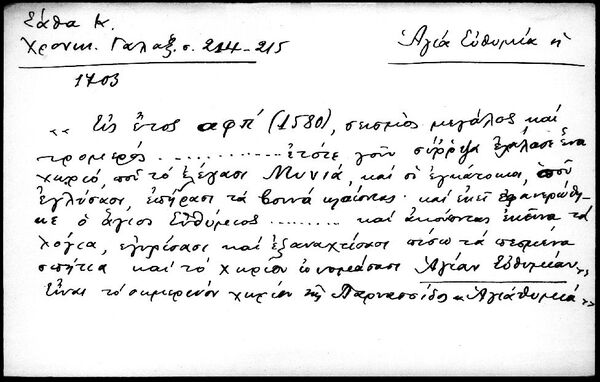 Σάθα Κ.
Χρονικ. Γαλαξ. σ. 214-215
Ἁγία Εὐθυμία ἡ
1703
« Εἰς ἔτος αφπ' (1580), σεισμὸς μεγάλος καὶ
τρομερός ............ ἐτότε γοῦν σύρριζα ἐχάλασε ἕνα
χωριό, ποῦ τὸ ἐλέγασι Μυνιά, καὶ οἱ ἐγκάτοικοι, ὁποῦ
ἐγλύσασι, ἐπήρασι τὰ βουνὰ κλαίοντας· καὶ ἐκεῖ ἐφανερώθη-
κε ὁ ἅγιος Εὐθύμιος ......... καὶ ἀκούοντας ἐκεῖνα τὰ
λόγια, ἐγυρίσασι καὶ ἐξαναχτίσασι πίσω τὰ πεσμένα
σπήτια καὶ τὸ χωριὸν ὠνομάσασι Ἁγίαν Εὐθυμίαν».
Εἶναι τὸ σημερινὸν χωρίον τῆς Παρνασσίδος « Ἁγιάθυμιά »